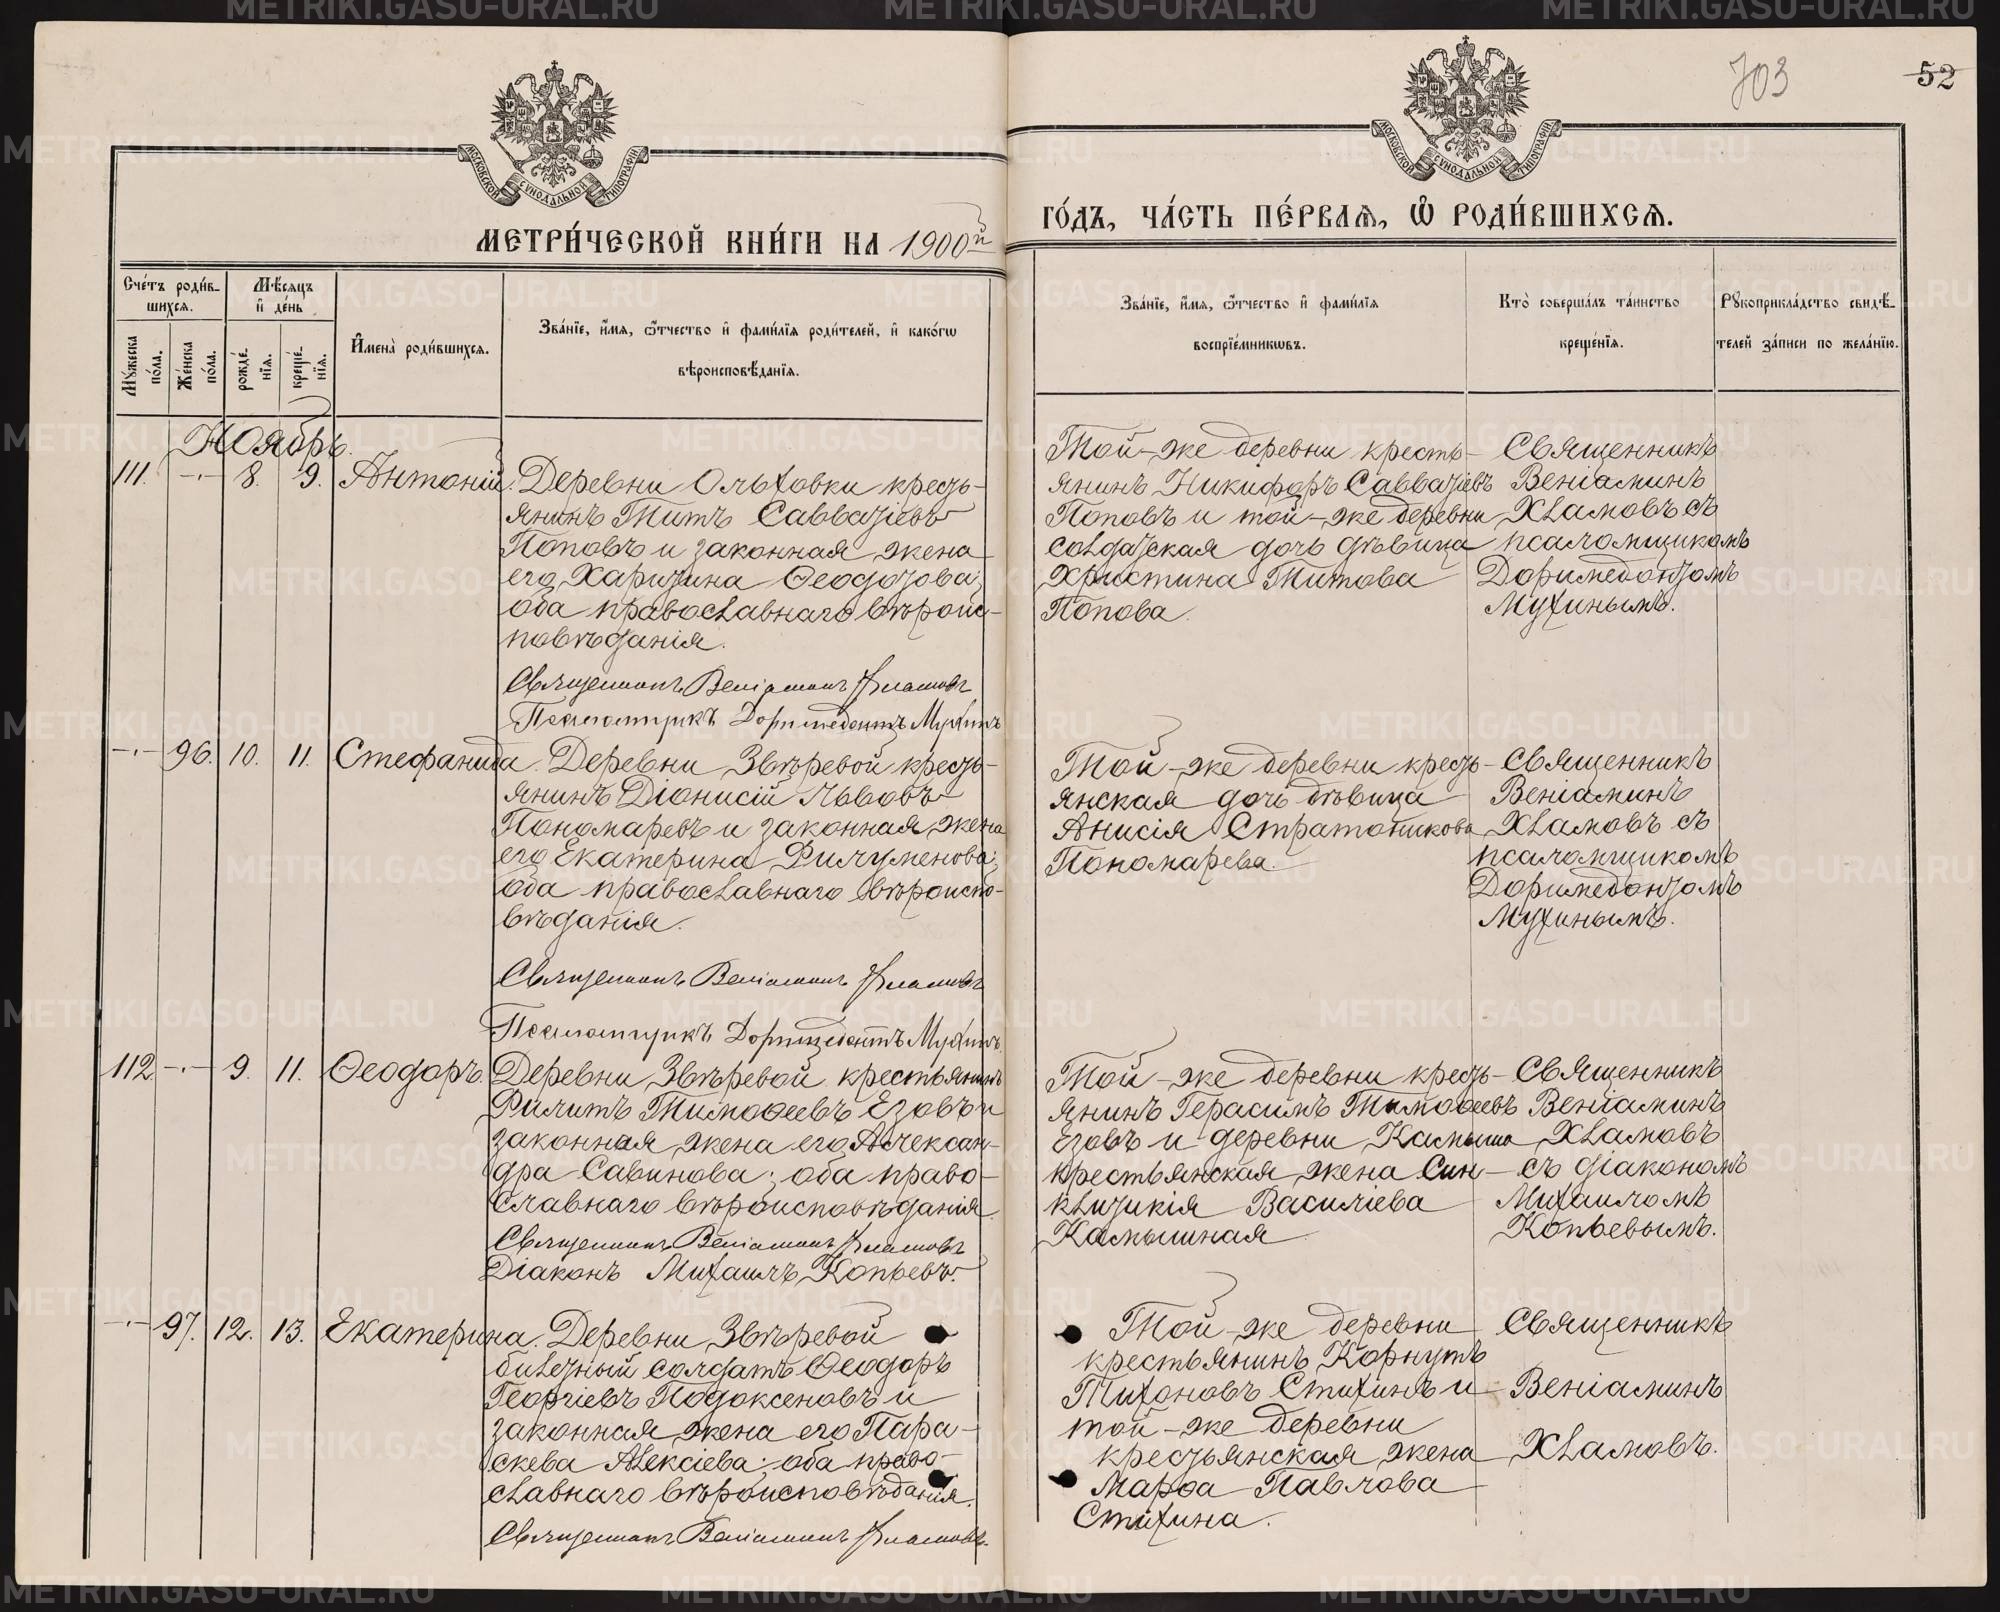 703
52
МОСКОВСКОЙ СУНОДАЛЬНОЙ ТИПОГРАФІИ
МОСКОВСКОЙ СУНОДАЛЬНОЙ ТИПОГРАФІИ
МЕТРИ́ЧЕСКОЙ КНИ́ГИ НА 1900й
ГО́ДЪ, ЧА́СТЬ ПЕ́РВАѦ, Ѡ҆ РОДИ́ВШИХСѦ.
Сче́тъ роди́в-
шихся.
Мѣ́сяцъ
и҆ де́нь
Мꙋ́жеска
по́ла.
Же́нска
по́ла.
рожде́-
нїѧ.
креще́-
нїѧ.
И҆мена̀ роди́вшихсѧ.
Зва́нїе, и҆́мѧ, ѻ҆́тчество и҆ фами́лїѧ роди́телей, и҆ како́гѡ
вѣроисповѣ́данїѧ.
Зва́нїе, и҆́мѧ, ѻ҆́тчество и҆ фами́лїѧ
воспрїе́мникѡвъ.
Кто̀ соверша́лъ та́инство
креще́нїѧ.
Рꙋкоприкла́дство свидѣ́-
телей за́писи по жела́нїю.
Ноябрь.
111. -·- 8. 9. Антоній.
Деревни Ольховки кресть-
янинъ Титъ Савватіевъ
Поповъ и законная жена
его Харитина Ѳеодотова;
оба православнаго вѣроис-
повѣданія.
Священникъ Веніаминъ Хламовъ
Псаломщикъ Доримедонтъ Мухинъ
Той-же деревни кресть-
янинъ Никифоръ Савватіевъ
Поповъ и той-же деревни
солдатская дочь дѣвица
Христина Титова
Попова.
Священникъ
Веніаминъ
Хламовъ съ
псаломщикомъ
Доримедонтомъ
Мухинымъ.
-·- 96. 10. 11. Стефанида.
Деревни Звѣревой кресть-
янинъ Діонисій Львовъ
Пономаревъ и законная жена
его Екатерина Филуменова;
оба православнаго вѣроиспо-
вѣданія.
Священникъ Веніаминъ Хламовъ
Псаломщикъ Доримедонтъ Мухинъ.
Той-же деревни кресть-
янская дочь дѣвица
Анисія Стратоникова
Пономарева.
Священникъ
Веніаминъ
Хламовъ съ
псаломщикомъ
Доримедонтомъ
Мухинымъ.
112. -·- 9. 11. Ѳеодоръ.
Деревни Звѣревой крестьянинъ
Филитъ Тимоѳеевъ Езовъ и
законная жена его Алексан-
дра Савинова; оба право-
славнаго вѣроисповѣданія.
Священникъ Веніаминъ Хламовъ
Діаконъ Михаилъ Копьевъ.
Той-же деревни кресть-
янинъ Герасимъ Тимоѳеевъ
Езовъ и деревни Камыша
крестьянская жена Син-
клитикія Василіева
Камышная
Священникъ
Веніаминъ
Хламовъ
съ діакономъ
Михаиломъ
Копьевымъ.
-·- 97. 12. 13. Екатерина.
Деревни Звѣревой
билетный солдатъ Ѳеодоръ
Георгіевъ Подоксеновъ и
законная жена его Пара-
скева Алексіева; оба право-
славнаго вѣроисповѣданія.
Священникъ Веніаминъ Хламовъ.
Той-же деревни
крестьянинъ Корнутъ
Тихоновъ Стихинъ и
той-же деревни
крестьянская жена
Марѳа Павлова
Стихина.
Священникъ
Веніаминъ
Хламовъ.
METRIKI.GASO-URAL.RU